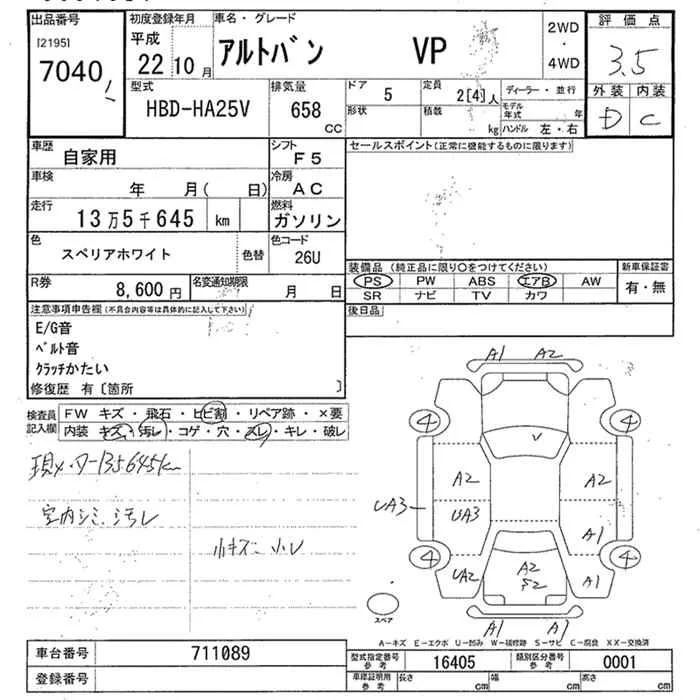 出品番号 初度登録年月 車名・グレード 評価点
[2195]
7040
平成
22 10 月
アルトバン VP
2WD
・
4WD
3.5
外装 内装
D C
型式
HBD-HA25V
排気量
658
CC
ドア
5
形状
定員
2[4]人
積数
kg
ディーラー・並行
モデル年式 年
ハンドル 左・右
車歴
自家用
シフト
F5
セールスポイント(正常に機能するものに限ります)
車検
年 月( 日)
冷房
AC
走行
13万5千645 km
燃料
ガソリン
色
スペリアホワイト
色替
色コード
26U
R券
8,600 円
名変通知期限
月 日
装備品 (純正品に限り○をつけてください)
PS PW ABS エアB AW
SR ナビ TV カワ
新車保証書
有・無
後日品
注意事項申告欄(不具合内容等は具体的に記入して下さい)
E/G音
ベルト音
クラッチかたい
修復歴 有〔箇所 〕
検査員記入欄
FW キズ・飛石・ヒビ割・リペア跡・×要
内装 キズ・汚レ・コゲ・穴・スレ・キレ・破レ
135645km
室内シミ、汚レ
小キズ 小
A1 A2
4 4
V
A2 A2
UA3 UA3
A1
4 4
UA2
A2
S2
A1
A1 A1
スペア
A－キズ E－エクボ U－凹み W－補修跡 S－サビ C－腐食 XX－交換済
車台番号
711089
型式指定番号
参考
16405
類別区分番号
参考
0001
登録番号
車庫証明用
参考
長さ cm 幅 cm 高さ cm